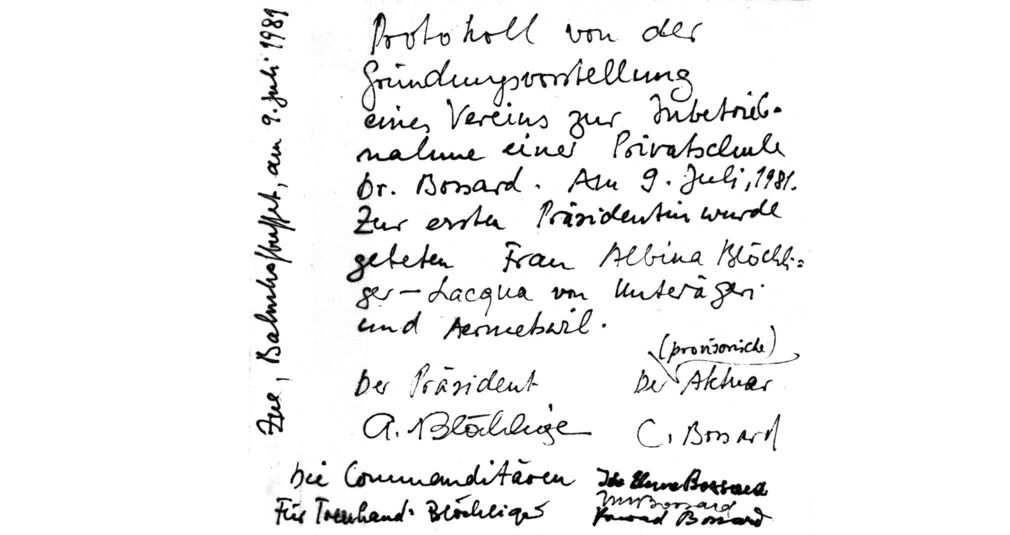 Zug, Bahnhofbuffet, am 9. Juli 1981
Protokoll von der
Gründungsvorstellung
eines Vereins zur Inbetrieb-
nahme einer Privatschule
Dr. Bossard. Am 9. Juli, 1981.
Zur ersten Präsidentin wurde
gebeten Frau Albina Blöchli=
ger-Lacqua von Unterägeri
und Aermetswil.
(provisorische)
Der Präsident Der Aktuar
A. Blöchliger C. Bossard
Die Commanditären Bossard
Bossard
Für Treuhand: Blöchliger Konrad Bossard